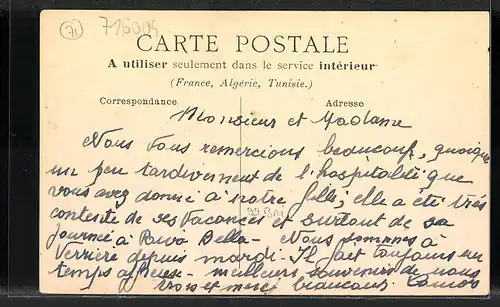 71
715004
CARTE POSTALE
A utiliser seulement dans le service intérieur
(France, Algérie, Tunisie.)
Correspondance Adresse
Monsieur et Madame
Nous Vous remercions beaucoup, quoique
un peu tardivement de l'hospitalité que
vous avez donné à notre fille; elle a été très
contente de ses vacances et surtout de sa
journée à Bella - Nous sommes à
Verrière depuis mardi - Il fait toujours un
temps - meilleurs souvenirs de nous
trois et merci beaucoup.